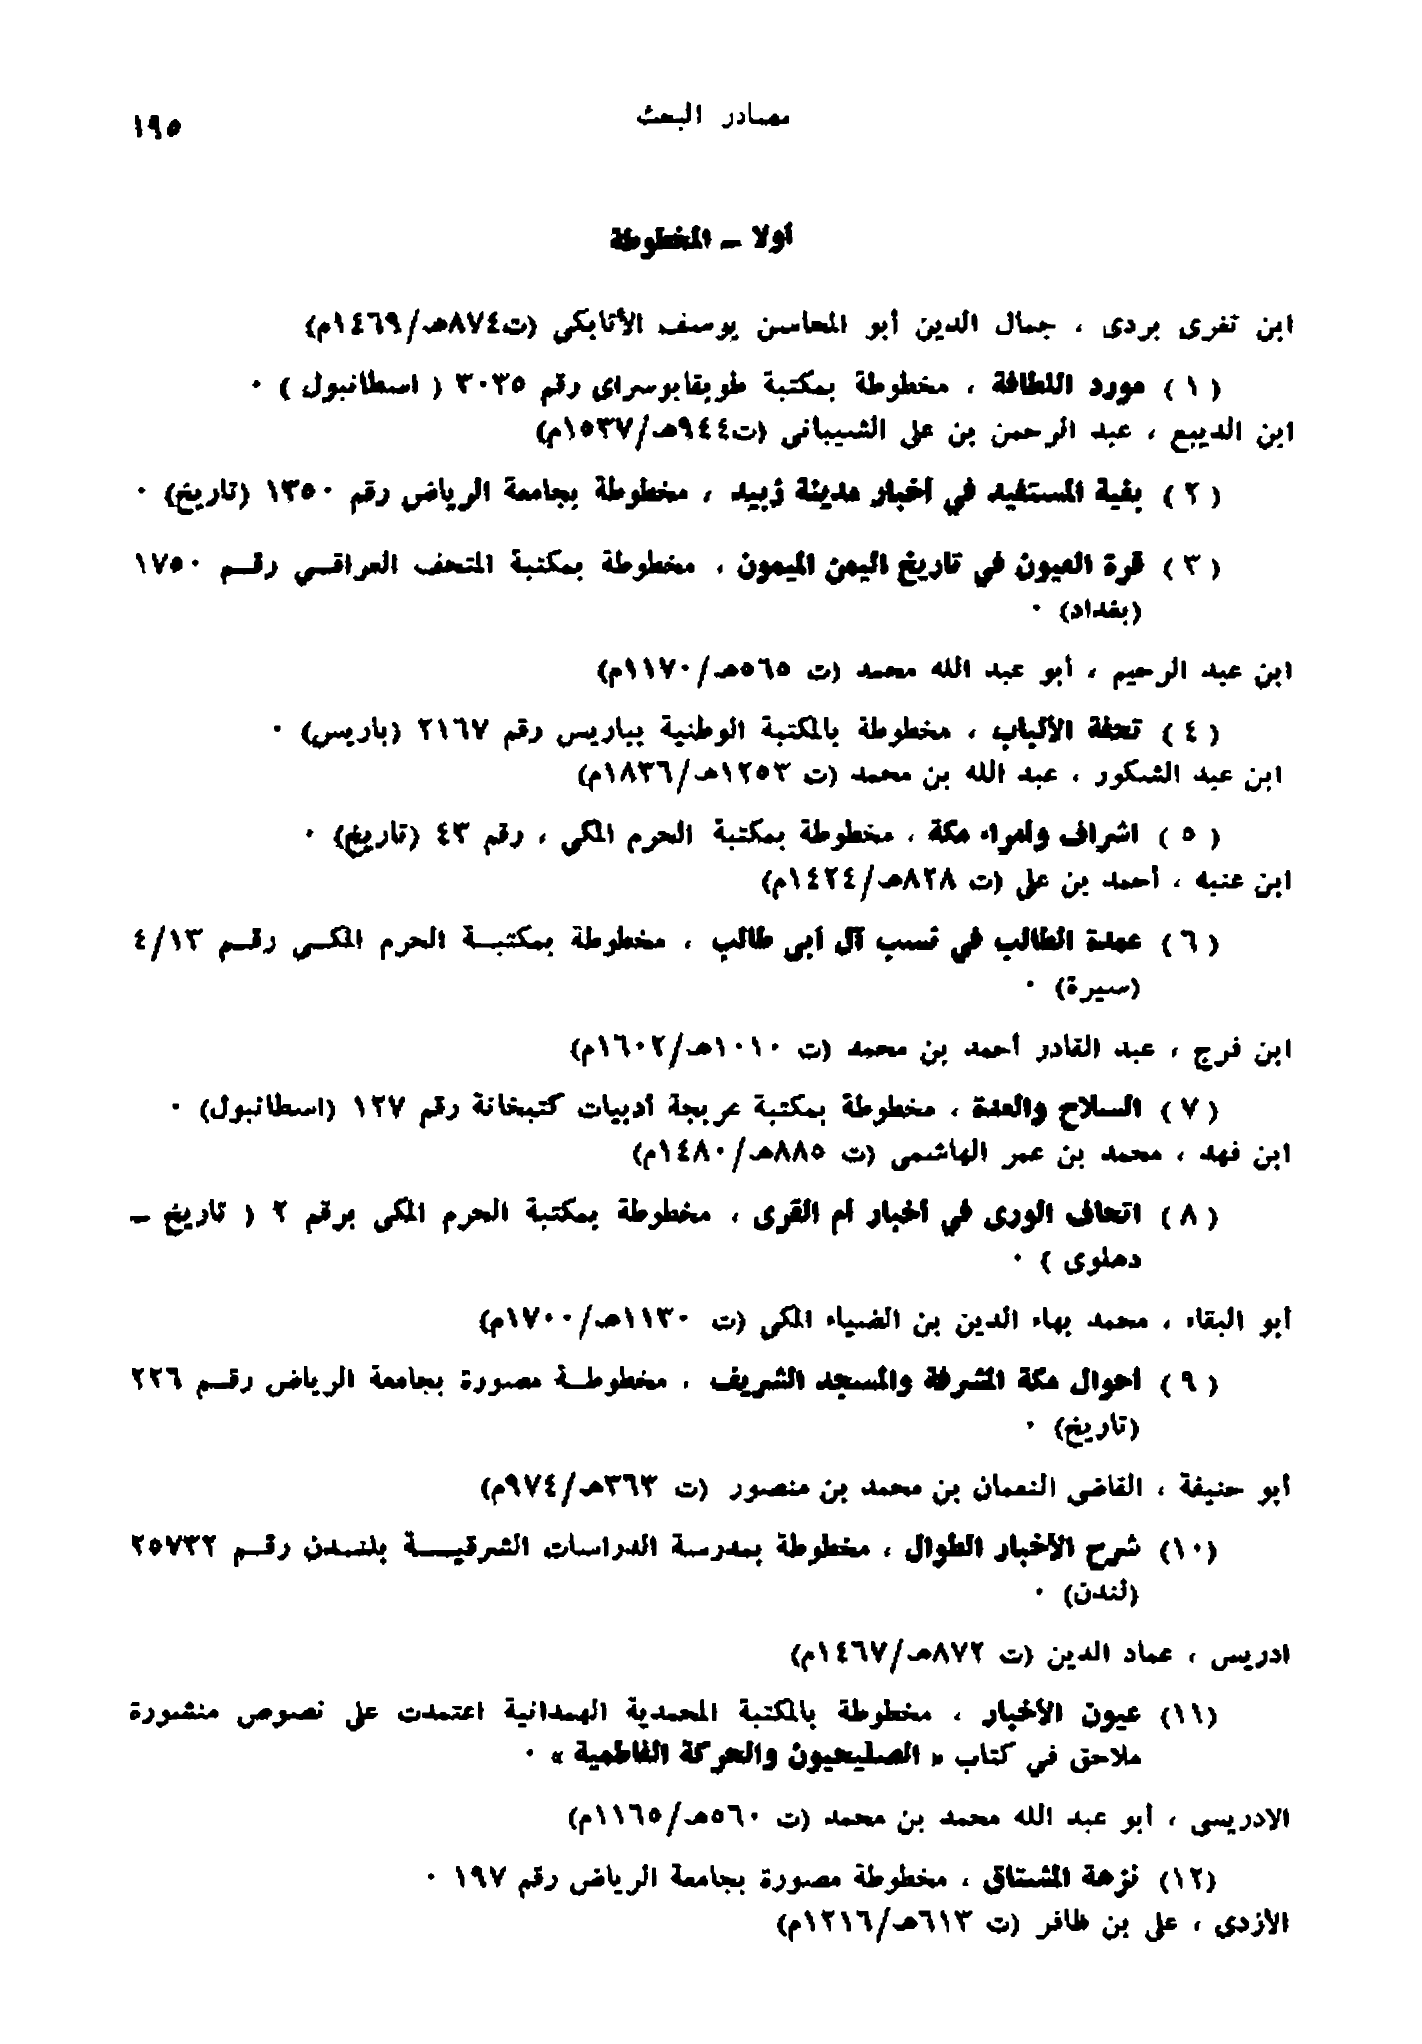 مصادر البحث
١٩٥
أولا – المخطوطة
ابن تغرى بردى ، جمال الدين أبو المحاسن يوسف الأتابكي (ت٨٧٤هـ/١٤٦٩م)
( ١ ) مورد اللطافة ، مخطوطة بمكتبة طوبقابوسراى رقم ٣٠٣٥ ( اسطانبول ) ٠
ابن الديبع ، عبد الرحمن بن على الشيبانى (ت٩٤٤هـ/١٥٣٧م)
( ٢ ) بغية المستفيد في أخبار مدينة زبيد ، مخطوطة بجامعة الرياض رقم ١٣٥٠ (تاريخ) ٠
( ٣ ) قرة العيون في تاريخ اليمن الميمون ، مخطوطة بمكتبة المتحف العراقي رقم ١٧٥٠
(بغداد) ٠
ابن عبد الرحيم ، أبو عبد الله محمد (ت ٥٦٥هـ/١١٧٠م)
( ٤ ) تحفة الألباب ، مخطوطة بالمكتبة الوطنية بباريس رقم ٢١٦٧ (باريس) ٠
ابن عبد الشكور ، عبد الله بن محمد (ت ١٢٥٣هـ/١٨٣٦م)
( ٥ ) اشراف وأمراء مكة ، مخطوطة بمكتبة الحرم المكي ، رقم ٤٣ (تاريخ) ٠
ابن عنبه ، أحمد بن على (ت ٨٢٨هـ/١٤٢٤م)
( ٦ ) عمدة الطالب في نسب آل أبى طالب ، مخطوطة بمكتبة الحرم المكى رقم ٤/١٣
(سيرة) ٠
ابن فرج ، عبد القادر أحمد بن محمد (ت ١٠١٠هـ/١٦٠٢م)
( ٧ ) السلاح والعدة ، مخطوطة بمكتبة عربجة أدبيات كتبخانة رقم ١٢٧ (اسطانبول) ٠
ابن فهد ، محمد بن عمر الهاشمى (ت ٨٨٥هـ/١٤٨٠م)
( ٨ ) اتحاف الورى في أخبار أم القرى ، مخطوطة بمكتبة الحرم المكى برقم ٢ ( تاريخ –
دهلوى ) ٠
أبو البقاء ، محمد بهاء الدين بن الضياء المكي (ت ١١٣٠هـ/١٧٠٠م)
( ٩ ) أحوال مكة المشرفة والمسجد الشريف ، مخطوطة مصورة بجامعة الرياض رقم ٢٢٦
(تاريخ) ٠
أبو حنيفة ، القاضى النعمان بن محمد بن منصور (ت ٣٦٣هـ/٩٧٤م)
(١٠) شرح الأخبار الطوال ، مخطوطة بمدرسة الدراسات الشرقية بلندن رقم ٢٥٧٣٢
(لندن) ٠
ادريس ، عماد الدين (ت ٨٧٢هـ/١٤٦٧م)
(١١) عيون الأخبار ، مخطوطة بالمكتبة المحمدية الهمدانية اعتمدت على نصوص منشورة
ملاحق في كتاب « الصليحيون والحركة الفاطمية » ٠
الادريسى ، أبو عبد الله محمد بن محمد (ت ٥٦٠هـ/١١٦٥م)
(١٢) نزهة المشتاق ، مخطوطة مصورة بجامعة الرياض رقم ١٩٧ ٠
الأزدى ، على بن ظافر (ت ٦١٣هـ/١٢١٦م)